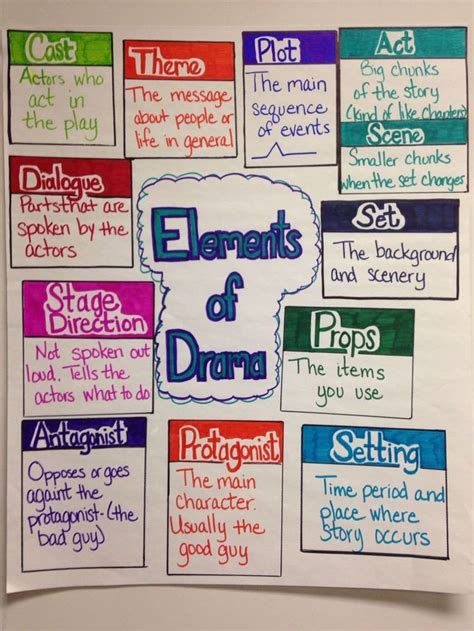 Cast
Actors who
act in
the play
Theme
The message
about people or
life in general
Plot
The main
sequence
of events
Act
Big chunks
of the story
(kind of like Chapters)
Scene
Smaller chunks
when the set changes
Dialogue
Parts that are
spoken by the
actors
Elements
of
Drama
Set
The background
and scenery
Stage
Direction
Not spoken out
loud. Tells the
actors what to do
Props
The items
you use
Antagonist
Opposes or goes
againt the
protagonist-(the
bad guy)
Protagonist
The main
character.
Usually the
good guy
Setting
Time period and
place where
Story occurs